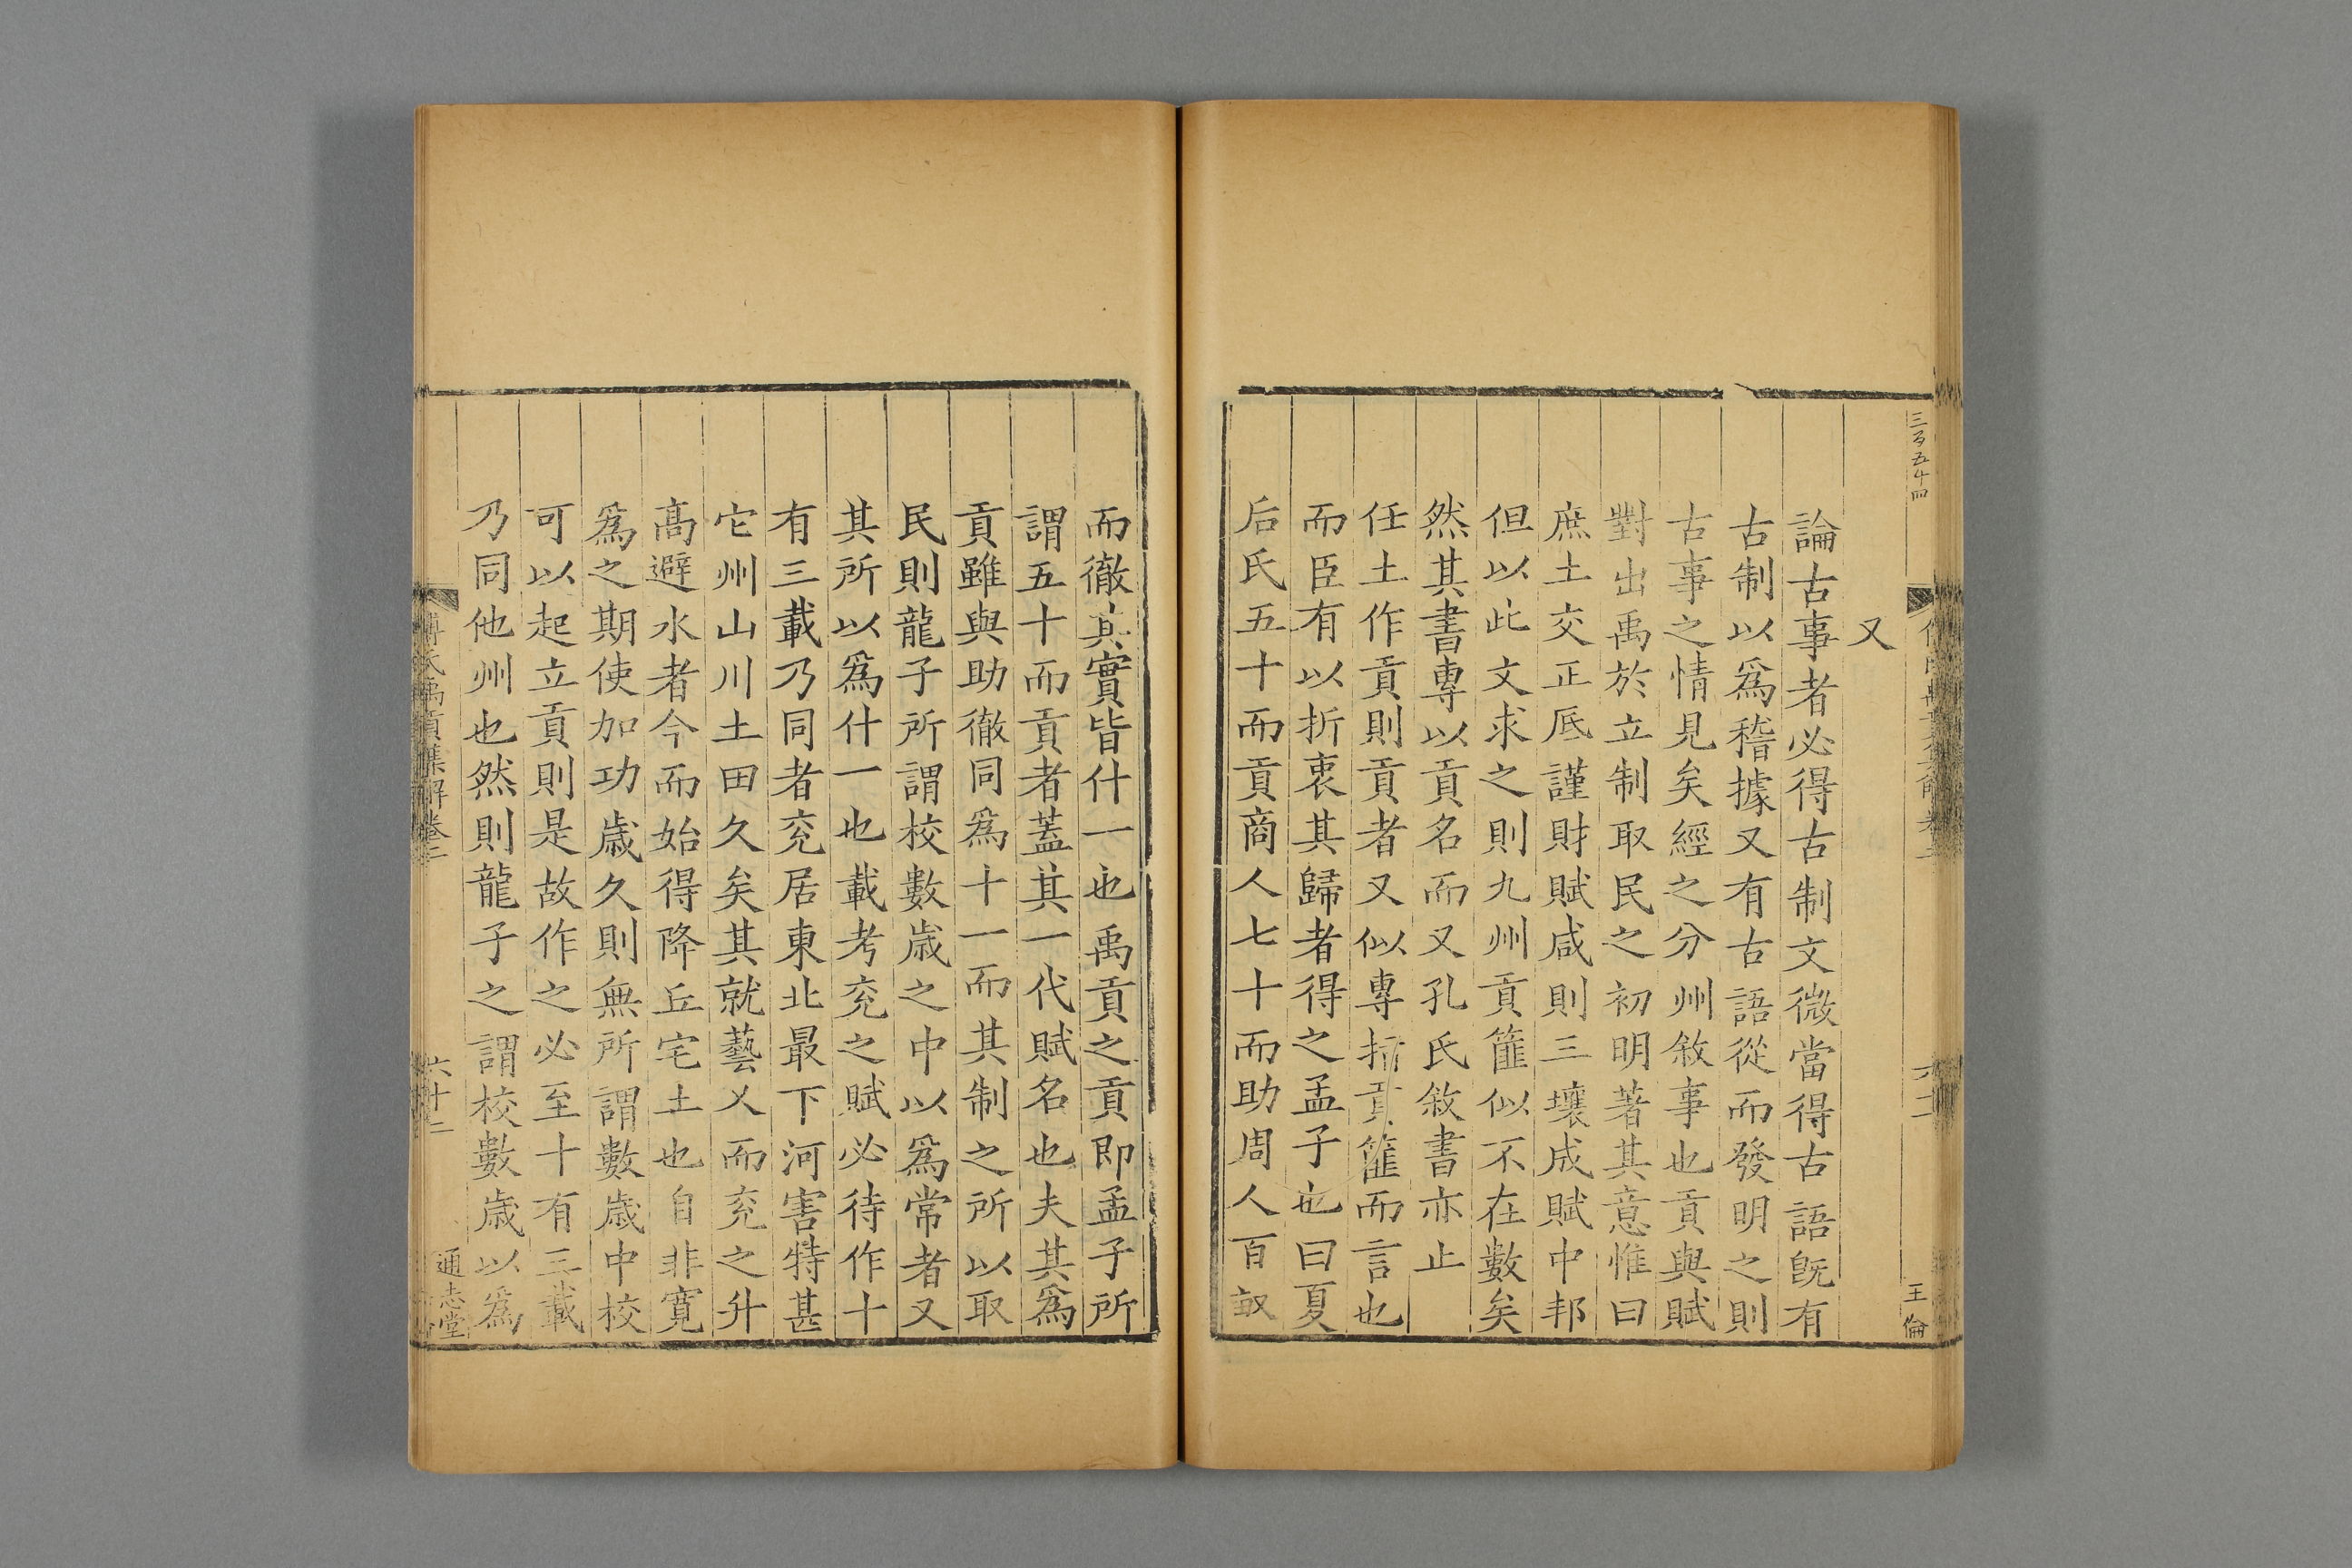 三百五十四
王倫
又
論古事者必得古制文微當得古語旣有
古制以爲稽據又有古語從而發明之則
古事之情見矣經之分州敘事也貢與賦
對出禹於立制取民之初明著其意惟曰
庶土交正厎謹財賦咸則三壤成賦中邦
但以此文求之則九州貢篚似不在數矣
然其書專以貢名而又孔氏敘書亦止
任土作貢則貢者又似專指貢篚而言也
而臣有以折衷其歸者得之孟子也曰夏
后氏五十而貢商人七十而助周人百畝
而徹其實皆什一也禹貢之貢即孟子所
謂五十而貢者蓋其一代賦名也夫其爲
貢雖與助徹同爲十一而其制之所以取
民則龍子所謂校數歲之中以爲常者又
其所以爲什一也載考兖之賦必待作十
有三載乃同者兖居東北最下河害特甚
它州山川土田久矣其就藝乂而兖之升
高避水者今而始得降丘宅土也自非寬
爲之期使加功歲久則無所謂數歲中校
可以起立貢則是故作之必至十有三載
乃同他州也然則龍子之謂校數歲以爲
傅氏禹貢集解卷二
六十二
通志堂